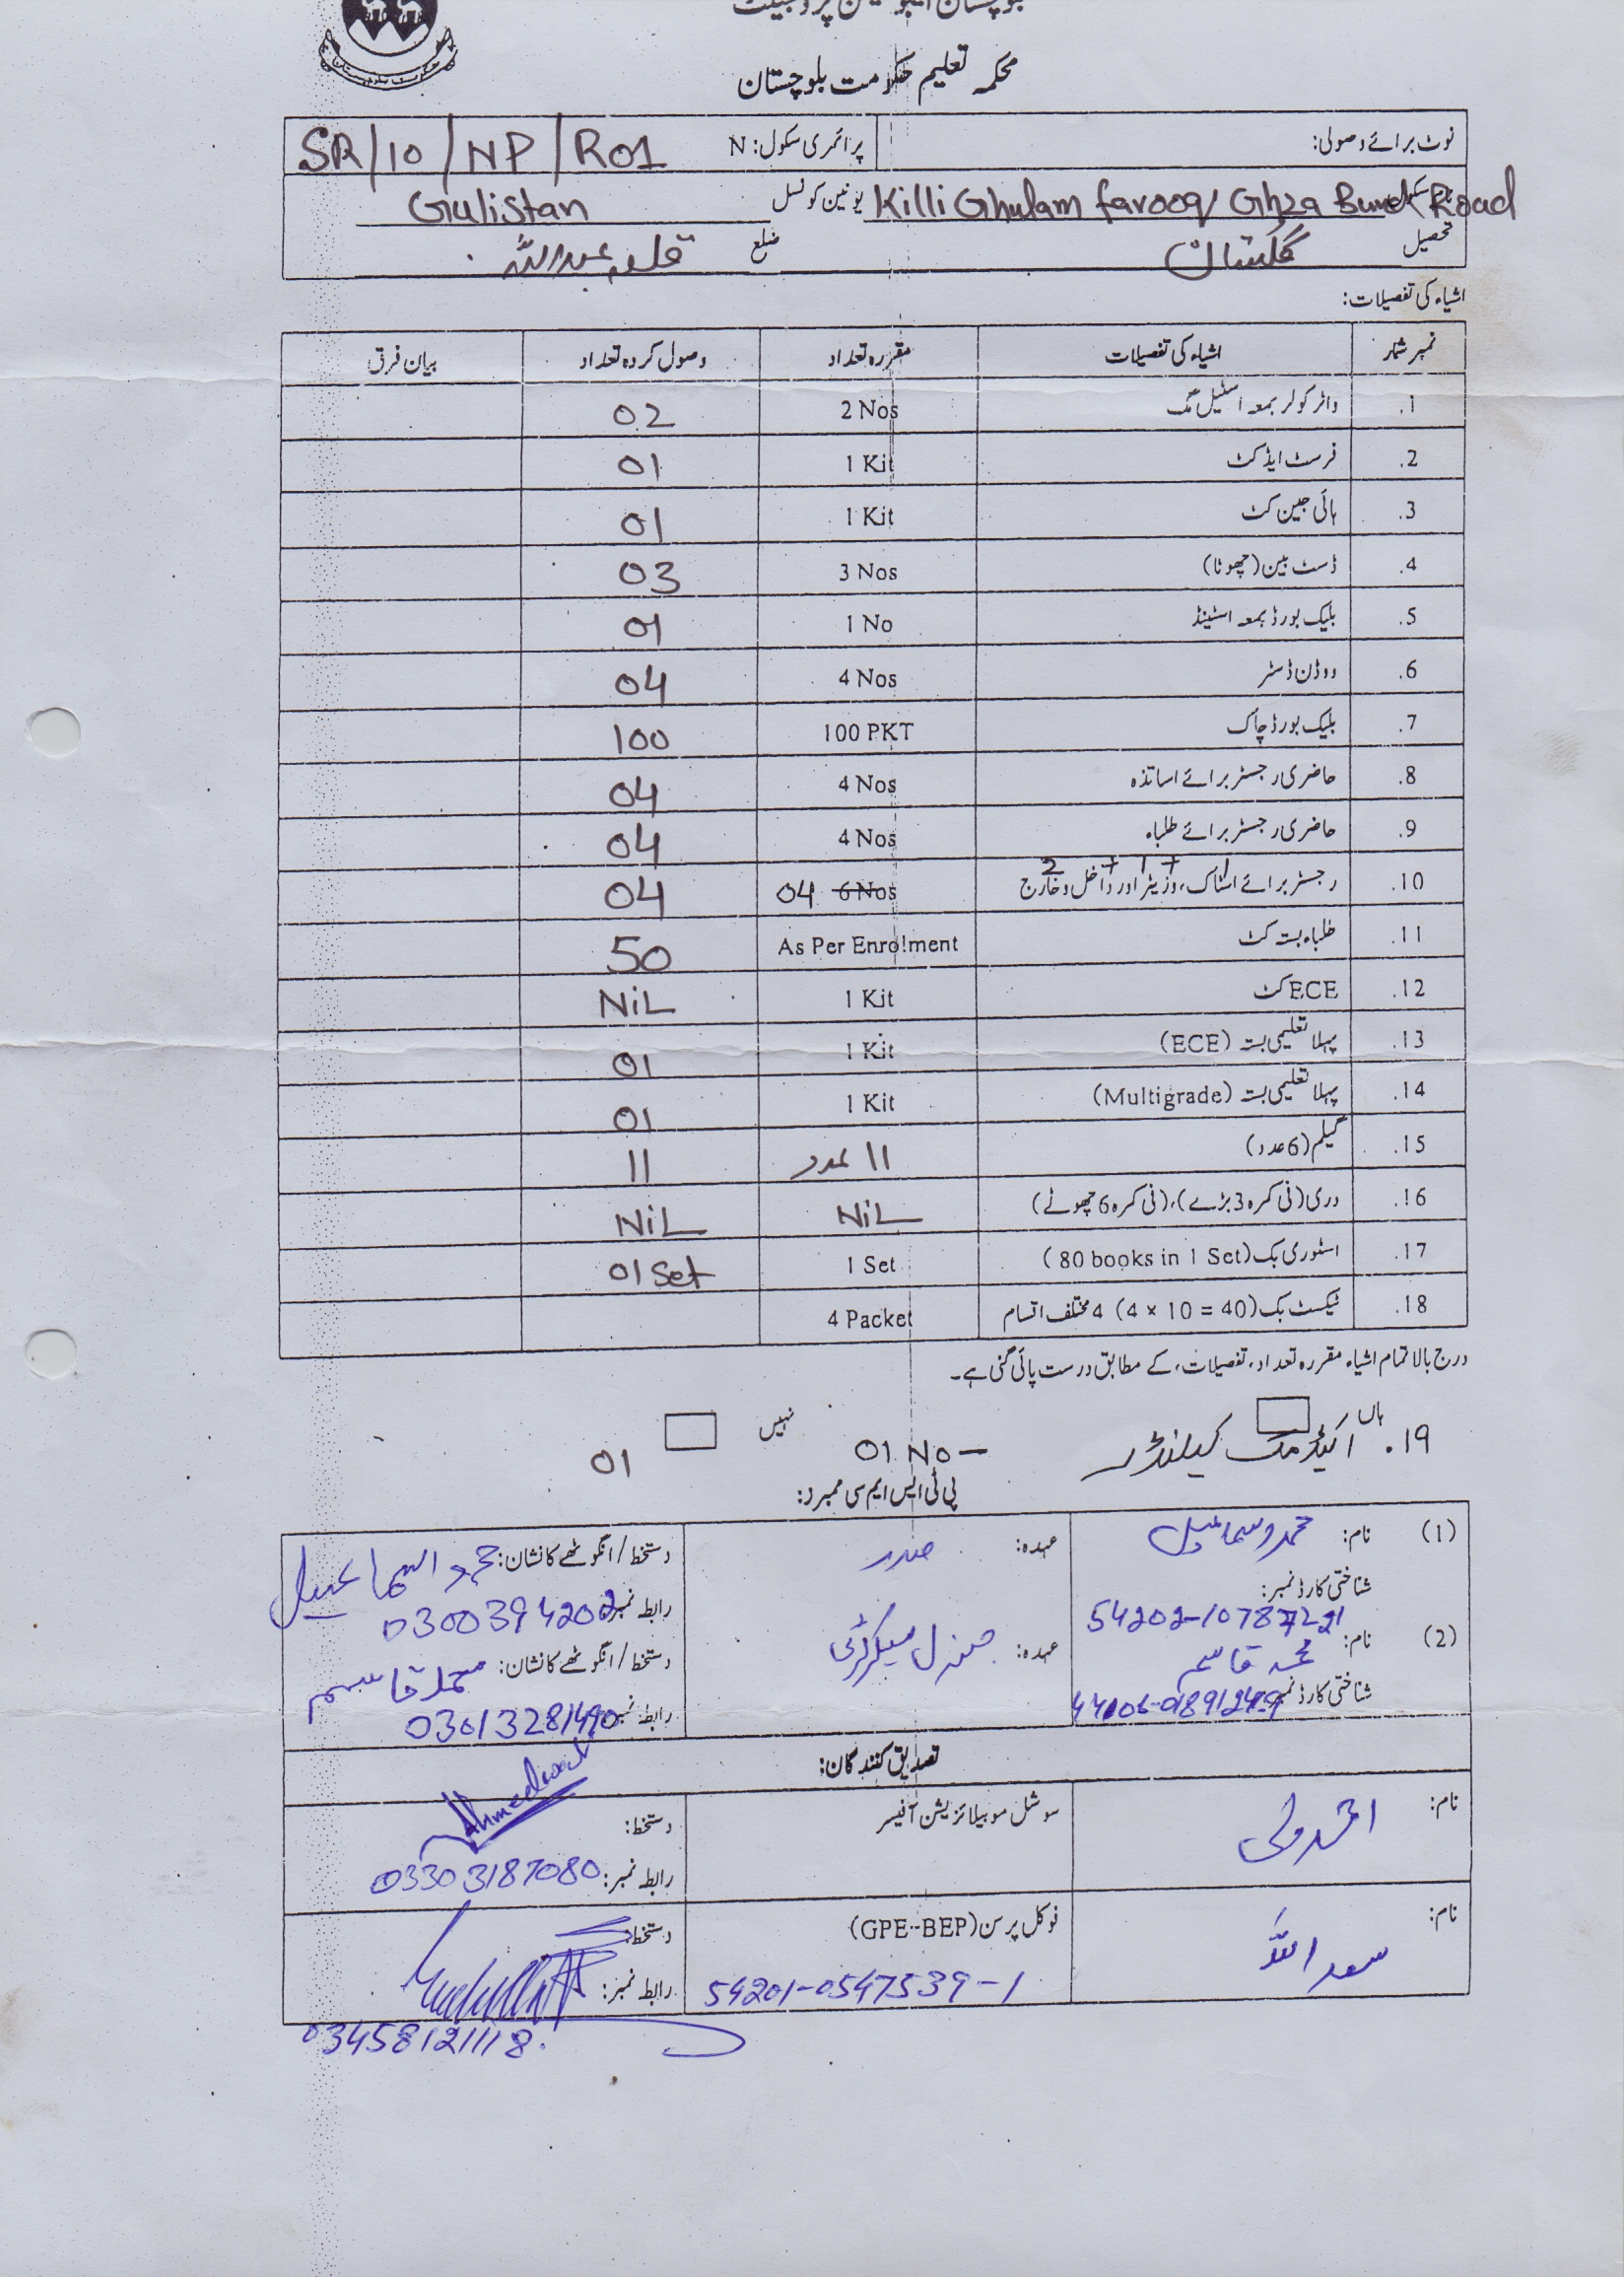 محکمہ تعلیم حکومت بلوچستان
نوٹ برائے وصولی: پرائمری سکول: N SR/10/NP/R01
Killi Ghulam farooq/ Ghza Bund Road یونین کونسل Gulistan
تحصیل گلستان ضلع قلعہ عبداللہ
اشیاء کی تفصیلات:
نمبر شمار اشیاء کی تفصیلات مقررہ تعداد وصول کردہ تعداد بیان فرق
.1 واٹر کولر بمعہ اسٹیل مگ 2 Nos 02
.2 فرسٹ ایڈ کٹ 1 Kit 01
.3 ہائی جین کٹ 1 Kit 01
.4 ڈسٹ بین (چھوٹا) 3 Nos 03
.5 بلیک بورڈ بمعہ اسٹینڈ 1 No 01
.6 ووڈن ڈسٹر 4 Nos 04
.7 بلیک بورڈ چاک 100 PKT 100
.8 حاضری رجسٹر برائے اساتذہ 4 Nos 04
.9 حاضری رجسٹر برائے طلباء 4 Nos 04
1 + 1 + 2
.10 رجسٹر برائے اسٹاک، وزیٹر اور داخل و خارج 6 Nos 04 04
.11 طلباء بستہ کٹ As Per Enrolment 50
.12 ECE کٹ 1 Kit NiL
.13 پہلا تعلیمی بستہ (ECE) 1 Kit 01
.14 پہلا تعلیمی بستہ (Multigrade) 1 Kit 01
.15 گیلم (6 عدد) 11 عدد 11
.16 دری (فی کمرہ 3 بڑے)، (فی کمرہ 6 چھوٹے) NiL NiL
.17 اسٹوری بک (80 books in 1 Set) 1 Set 01 Set
.18 ٹیکسٹ بک (4 × 10 = 40) 4 مختلف اقسام 4 Packet
درج بالا تمام اشیاء مقررہ تعداد، تفصیلات، کے مطابق درست پائی گئی ہے۔
ہاں نہیں
.19 اکیڈمک کیلنڈر 01 No — 01
پی ٹی ایس ایم سی ممبرز:
(1) نام: عہدہ: صدر دستخط / انگوٹھے کا نشان:
شناختی کارڈ نمبر: رابطہ نمبر: 0300394202
(2) نام: محمد قاسم عہدہ: جنرل سیکرٹری دستخط / انگوٹھے کا نشان: محمد قاسم
شناختی کارڈ نمبر: رابطہ نمبر: 03013281490
تصدیق کنندگان:
نام: احمد ولی سوشل موبیلائزیشن آفیسر دستخط:
رابطہ نمبر: 03303187080
نام: سعد اللہ فوکل پرسن (GPE-BEP) دستخط:
54201-0547539-1 رابطہ نمبر:
03458121118